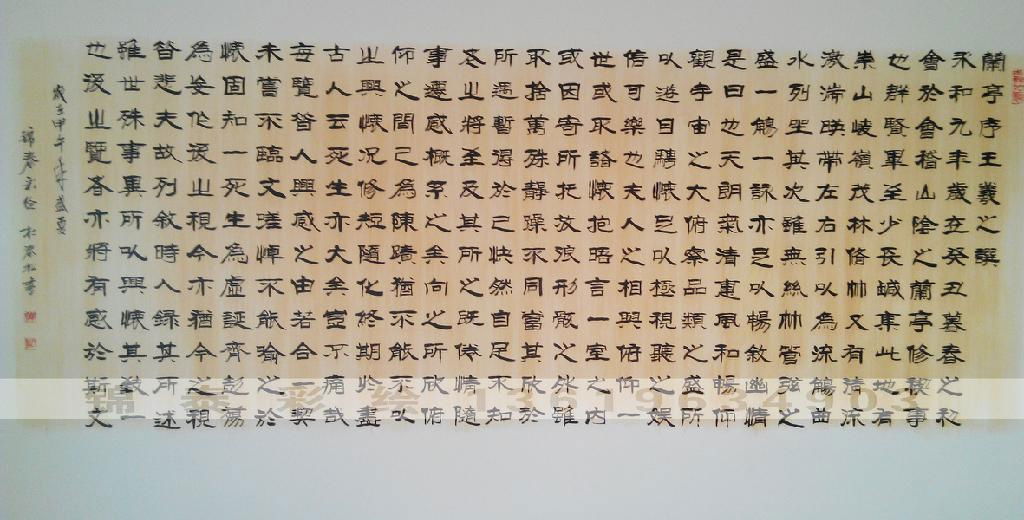 蘭亭序王羲之撰
永和九年歲在癸丑暮春之初
會於會稽山陰之蘭亭修禊事
也群賢畢至少長咸集此地有
崇山峻嶺茂林脩竹又有清流
激湍暎帶左右引以為流觴曲
水列坐其次雖無絲竹管弦之
盛一觴一詠亦足以暢敘幽情
是日也天朗氣清惠風和暢仰
觀宇宙之大俯察品類之盛所
以遊目騁懷足以極視聽之娛
信可樂也夫人之相與俯仰一
世或取諸懷抱晤言一室之內
或因寄所托放浪形骸之外雖
取捨萬殊靜躁不同當其欣於
所遇暫得於己快然自足不知
老之將至及其所之既倦情隨
事遷感概系之矣向之所欣俯
仰之間已為陳蹟猶不能不以
之興懷況修短隨化終期於盡
古人云死生亦大矣豈不痛哉
每覽昔人興感之由若合一契
未嘗不臨文嗟悼不能喻之於
懷固知一死生為虛誕齊彭殤
為妄作後之視今亦猶今之視
昔悲夫故列敘時人錄其所述
雖世殊事異所以興懷其致一
也後之覽者亦將有感於斯文
彩绘 13619634903